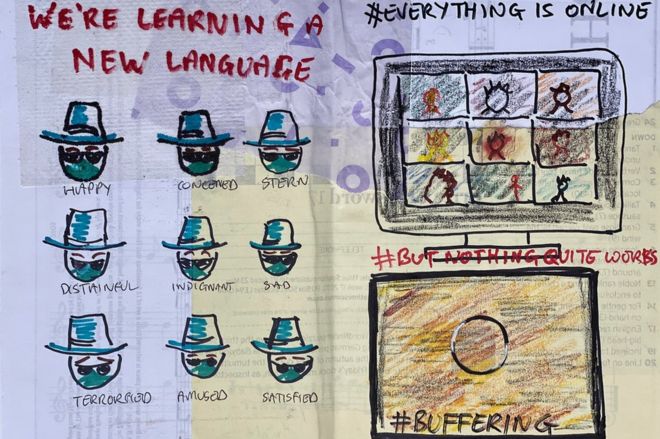 WE'RE LEARNING A
NEW LANGUAGE
HAPPY
CONCENED
STERN
DISTAINFUL
INDIGNANT
SAD
TERRORFIED
AMUSED
SATISFIED
#EVERYTHING IS ONLINE
#BUT NOTHING QUITE WORKS
#BUFFERING